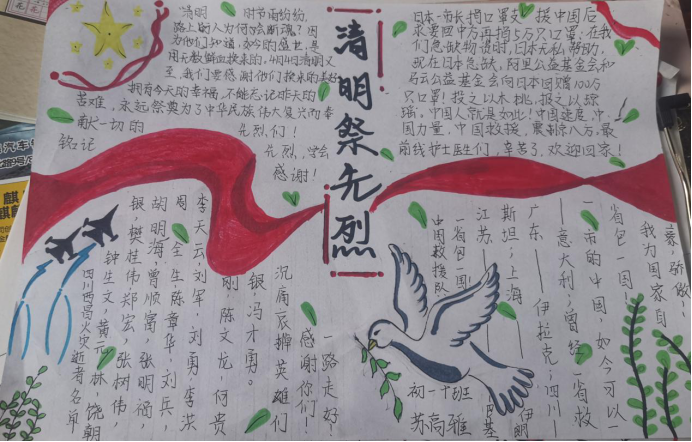 清明祭先烈
清明 时节雨纷纷,
路上行人为何会断魂?因
为他们知道,如今的盛世,是
用无数鲜血换来的,4月4日清明又
至,我们要感谢他们换来的美好
拥有今天的幸福,不能忘记昨天的
苦难,永远祭奠为了中华民族伟大复兴而奉
献一切的 先烈们!
铭记 先烈,学会
感谢!
日本一市长捐口罩支援中国后
求要回中方再捐5万只口罩:在我
们急缺物资时,日本无私帮助,
现在日本急缺,阿里公益基金会和
马云公益基金会向日本回赠100万
只口罩!投之以木桃,报之以琼
瑶,中国人就是如此!中国速度,中
国力量,中国救援,震惊八方,最
前线护士医生们,辛苦了,欢迎回家!
李天云,刘军,刘勇,李洪
周全生,陈章华,刘兵,
胡明海,曾顺富,张明福,
银,樊桂伟,郑宏,张树伟,
钟生文,黄元林,饶朝
四川西昌火灾逝者名单
一路走好!
感谢你们!
沉痛哀悼英雄们
银,冯才勇。
刚,陈文龙,何贵
豪,骄傲!
我为国家自
省包一国!
一市的中国,如今可以一
——意大利;曾经一省救
广东——伊拉克;四川——
斯坦;上海
江苏——
一省包一国
中国救援队
伊朗
巴基
初一十班
苏高雅